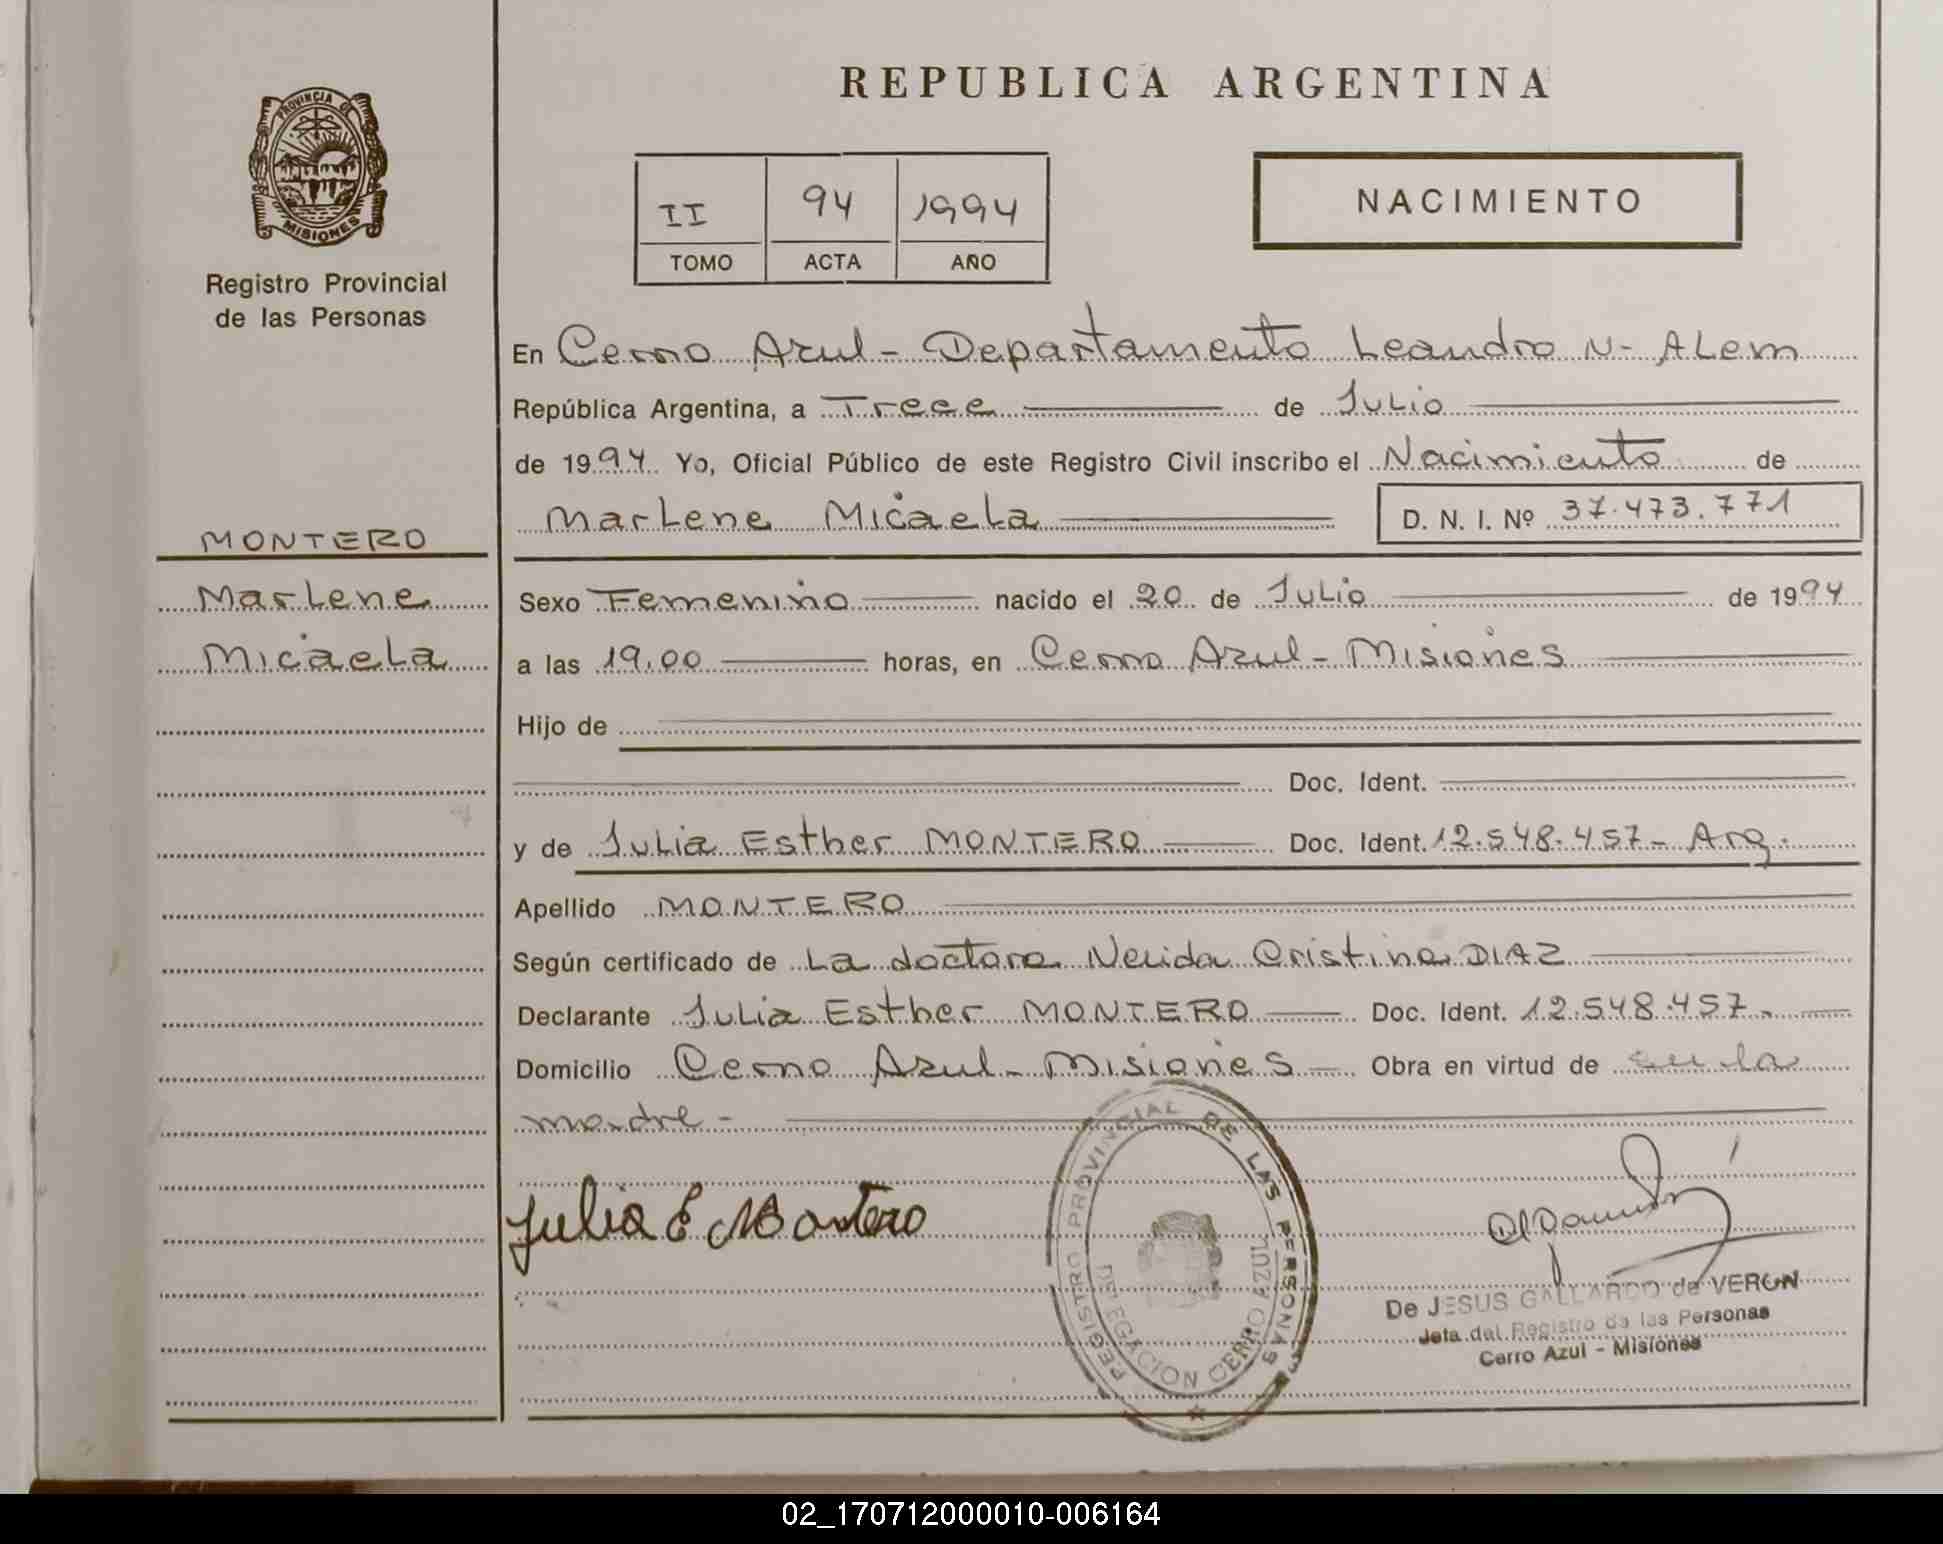 PROVINCIA DE
MISIONES
Registro Provincial
de las Personas
MONTERO
Marlene
Micaela
REPUBLICA ARGENTINA
II 94 1994
TOMO ACTA AÑO
NACIMIENTO
En Cerro Azul - Departamento Leandro N- ALem
República Argentina, a Trece de Julio
de 1994 Yo, Oficial Público de este Registro Civil inscribo el Nacimiento de
Marlene Micaela D. N. I. Nº 37.473.771
Sexo Femenino nacido el 20 de Julio de 1994
a las 19.00 horas, en Cerro Azul - Misiones
Hijo de
Doc. Ident.
y de Julia Esther MONTERO Doc. Ident. 12.548.457- Arg.
Apellido MONTERO
Según certificado de La doctora Nerida Cristina DIAZ
Declarante Julia Esther MONTERO Doc. Ident. 12.548.457.
Domicilio Cerro Azul - Misiones Obra en virtud de ser la
madre -
Julia E Montero
REGISTRO PROVINCIAL DE LAS PERSONAS
DELEGACION CERRO AZUL
De JESUS GALLARDO de VERON
Jefa del Registro de las Personas
Cerro Azul - Misiones
02_170712000010-006164